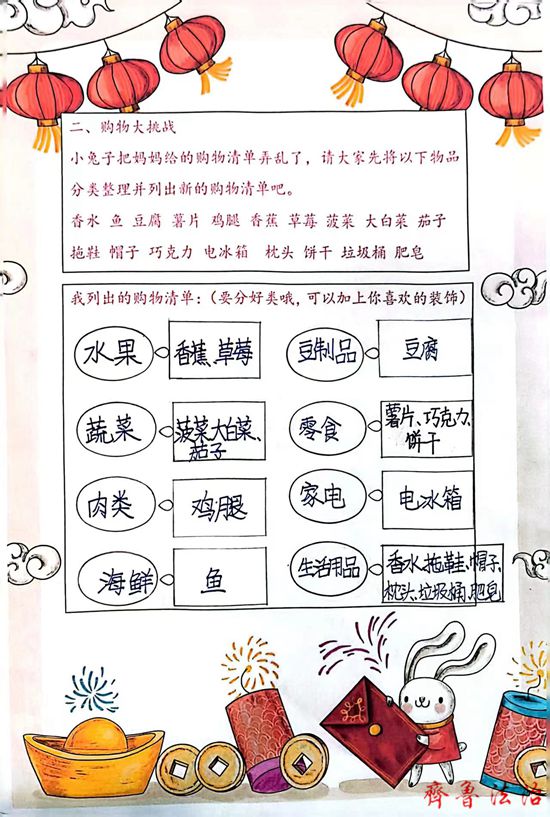 二、购物大挑战
小兔子把妈妈给的购物清单弄乱了，请大家先将以下物品
分类整理并列出新的购物清单吧。
香水 鱼 豆腐 薯片 鸡腿 香蕉 草莓 菠菜 大白菜 茄子
拖鞋 帽子 巧克力 电冰箱 枕头 饼干 垃圾桶 肥皂
我列出的购物清单：（要分好类哦，可以加上你喜欢的装饰）
水果
香蕉、草莓
豆制品
豆腐
蔬菜
菠菜、大白菜、
茄子
零食
薯片、巧克力、
饼干
肉类
鸡腿
家电
电冰箱
海鲜
鱼
生活用品
香水、拖鞋、帽子、
枕头、垃圾桶、肥皂
齐鲁法治